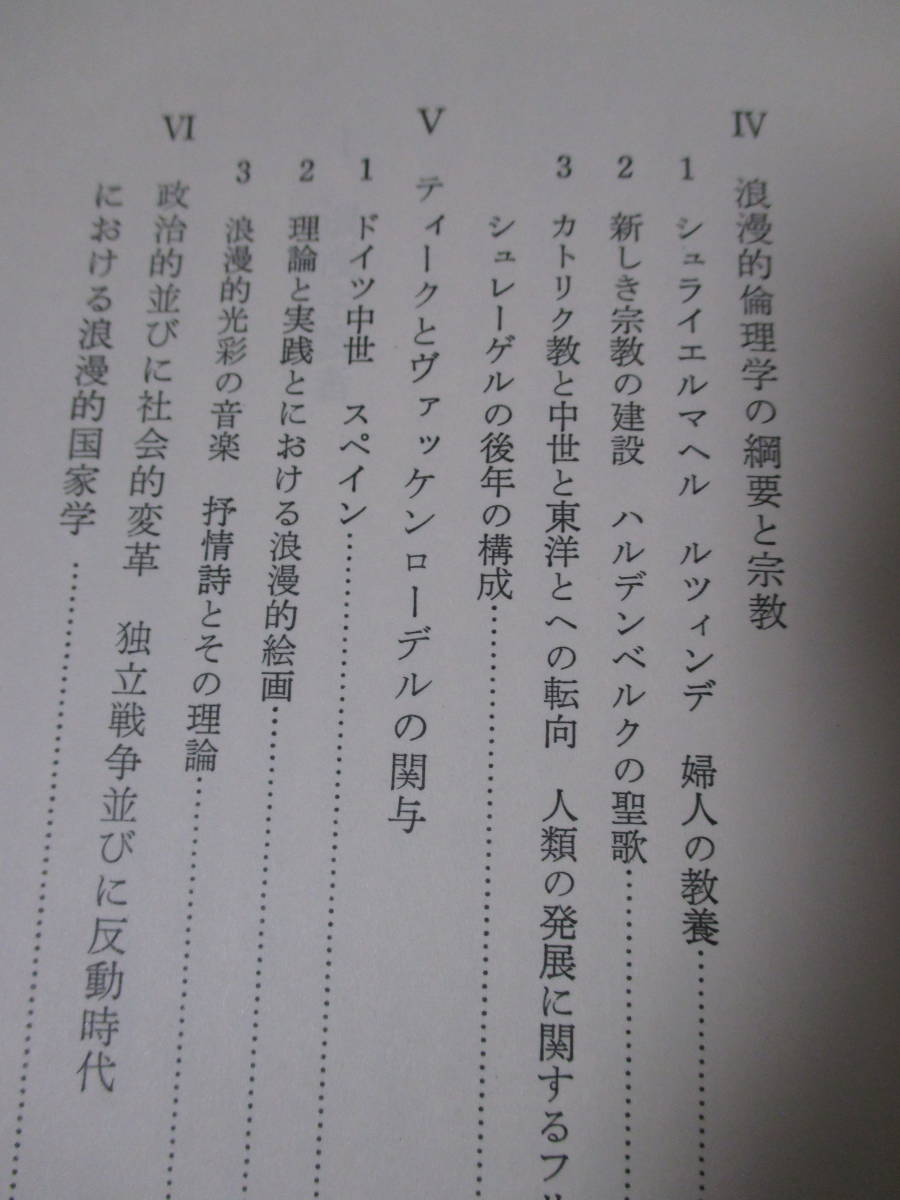 IV 浪漫的倫理学の綱要と宗教
1 シュライエルマヘル ルツィンデ 婦人の教養
2 新しき宗教の建設 ハルデンベルクの聖歌
3 カトリク教と中世と東洋とへの転向 人類の発展に関するフ
シュレーゲルの後年の構成
V ティークとヴァッケンローデルの関与
1 ドイツ中世 スペイン
2 理論と実践とにおける浪漫的絵画
3 浪漫的光彩の音楽 抒情詩とその理論
VI 政治的並びに社会的変革 独立戦争並びに反動時代
における浪漫的国家学